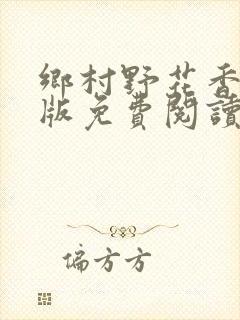 鄉村野花香
版免費閱讀
偏方方